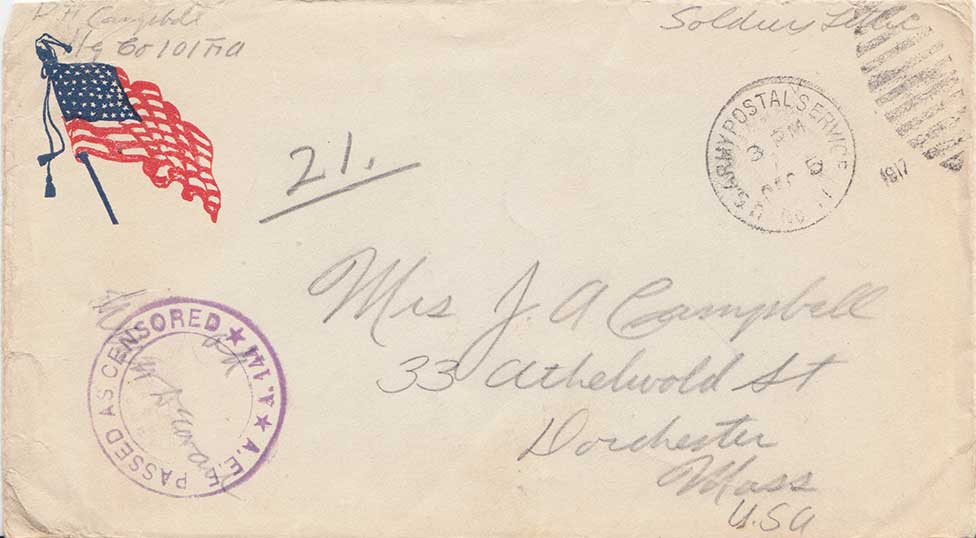 R H Campbell
Hq Co 101 FA
Soldiers Letter
21.
U.S. ARMY POSTAL SERVICE
3 PM
DEC 5
No. 1
1917
Mrs J. A Campbell
33 Athelwold St
Dorchester
Mass
U.S.A
PASSED AS CENSORED
A.E.F.